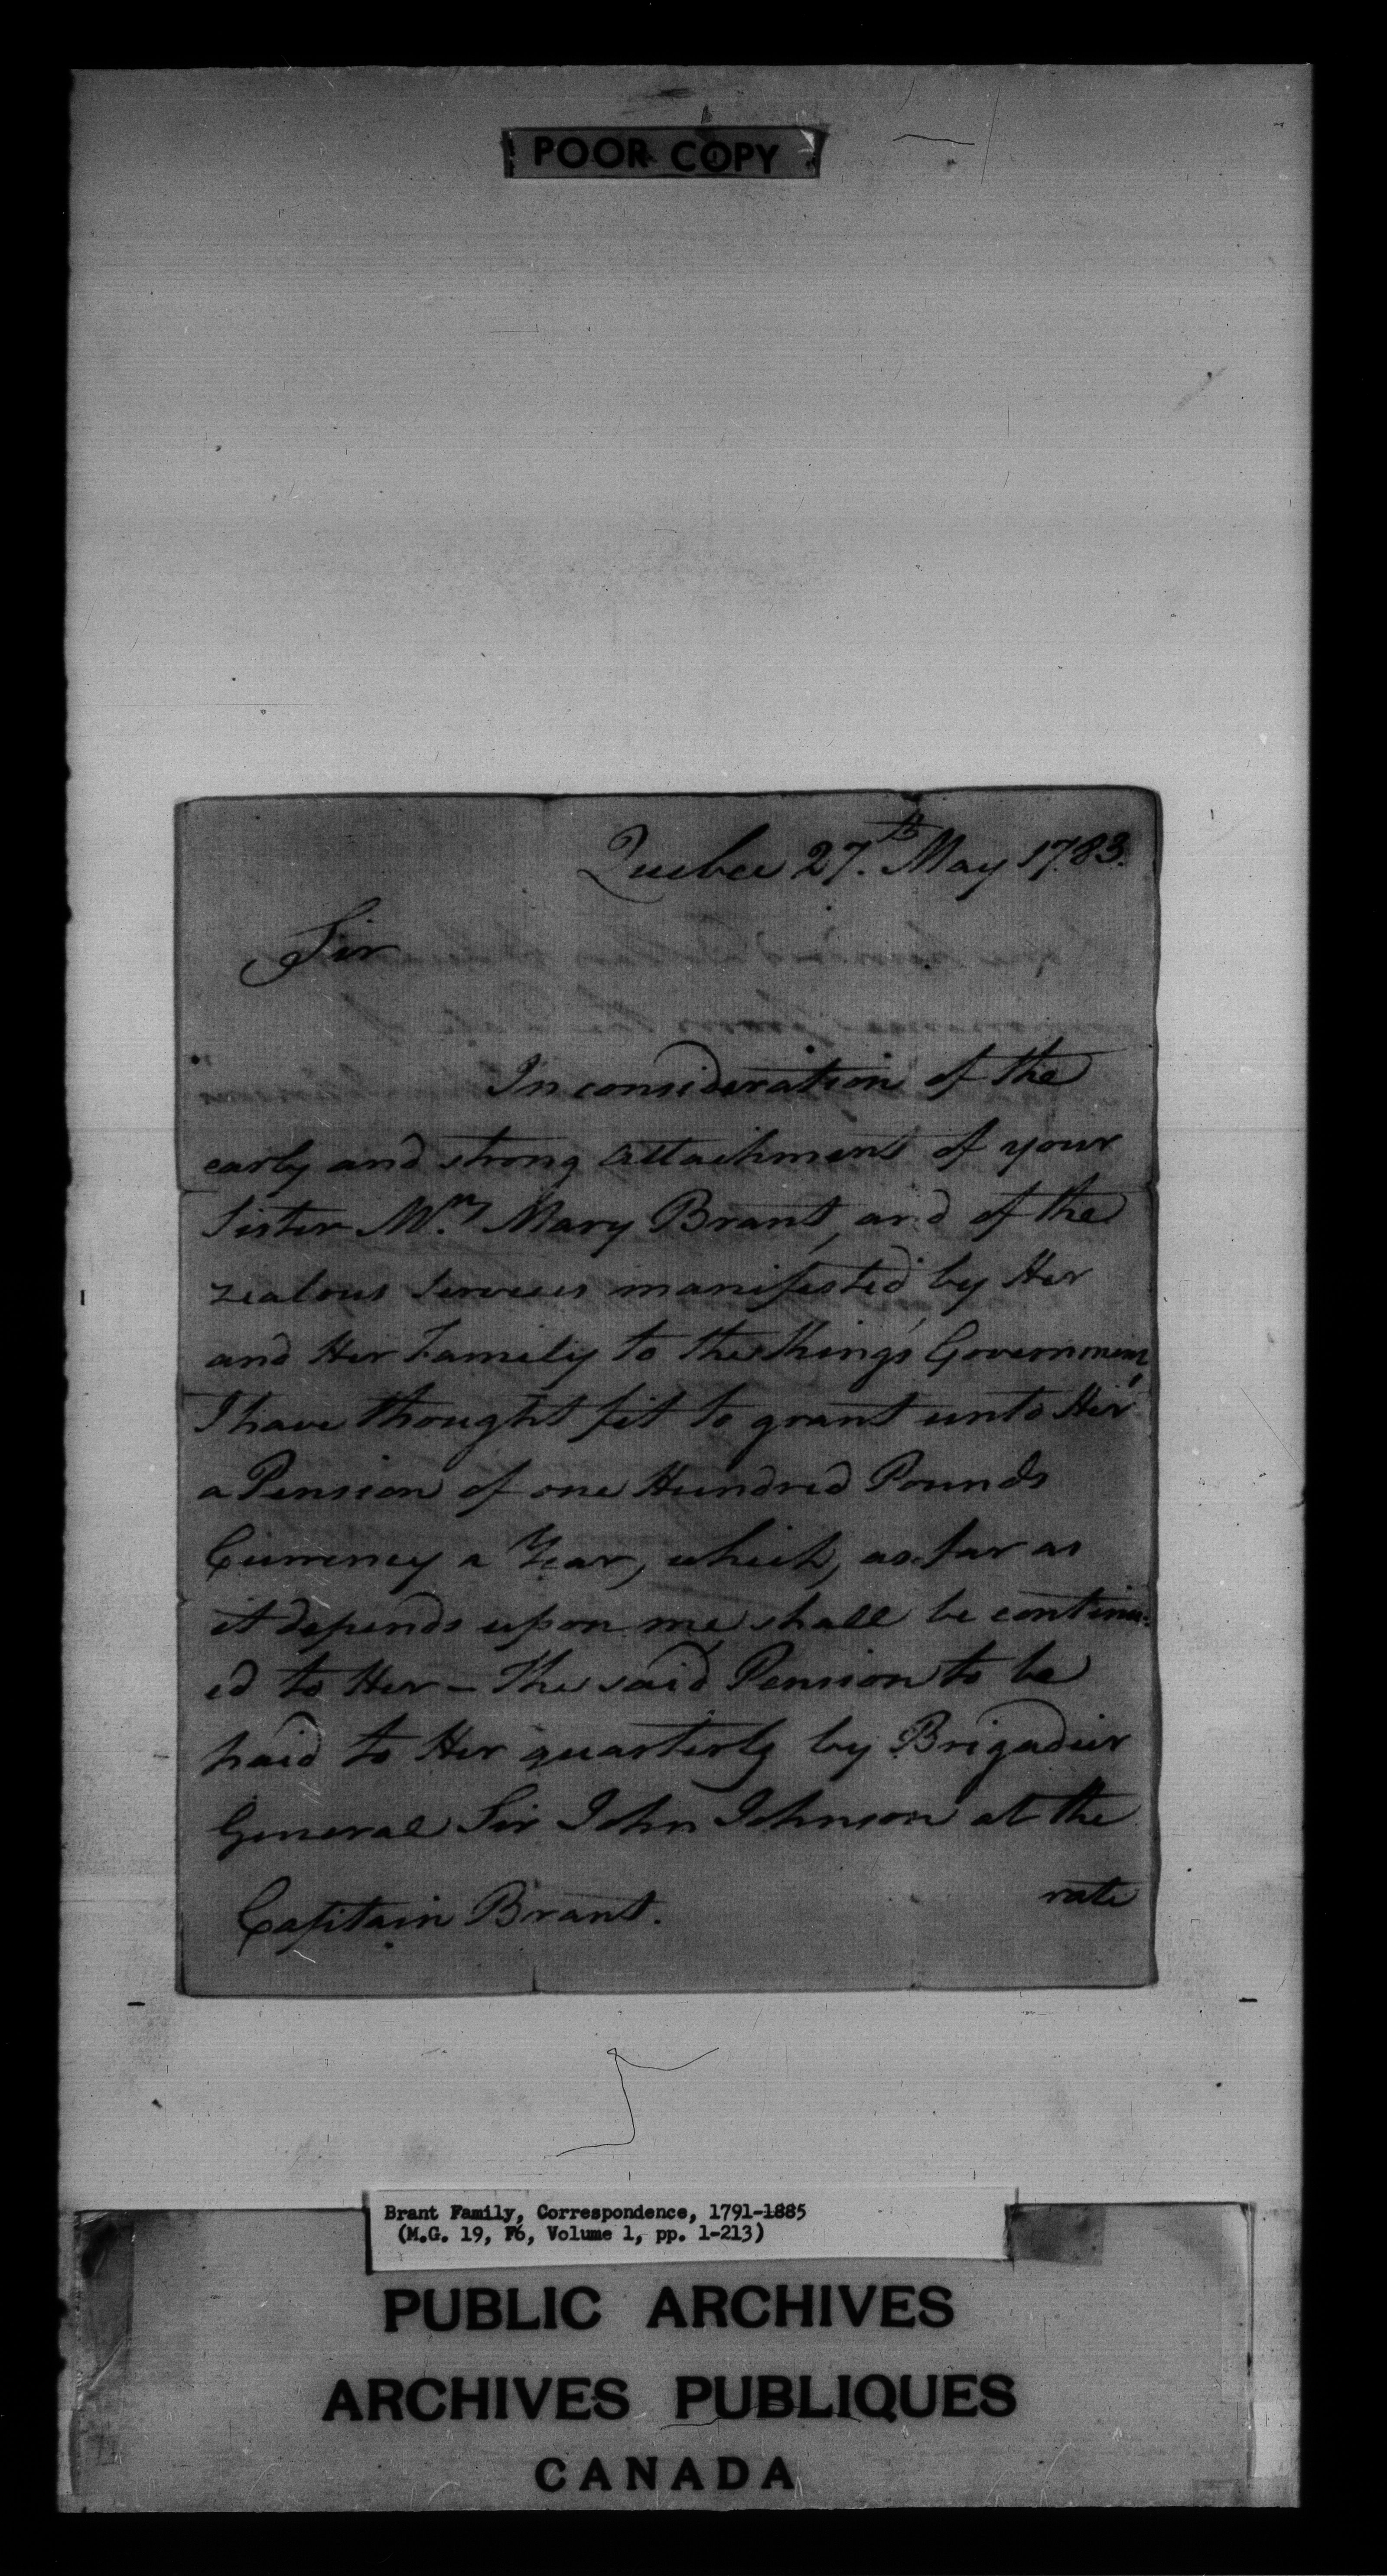 POOR COPY
Quebec 27.th May 1783.
Sir
In consideration of the
early and strong attachment of your
Sister Mrs. Mary Brant, and of the
zealous Services manifested by Her
and Her Family to the King's Government,
I have thought fit to grant unto Her
a Pension of one Hundred Pounds
Currency a Year, which, as far as
it depends upon me shall be continu-
ed to Her – The said Pension to be
paid to Her quarterly by Brigadier
General Sir John Johnson at the
rate
Captain Brant.
Brant Family, Correspondence, 1791-1885
(M.G. 19, F6, Volume 1, pp. 1-213)
PUBLIC ARCHIVES
ARCHIVES PUBLIQUES
CANADA